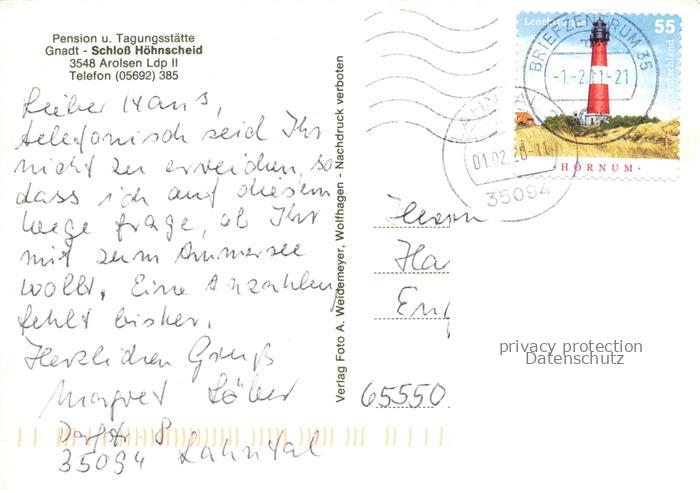 Pension u. Tagungsstätte
Gnadt - Schloß Höhnscheid
3548 Arolsen Ldp II
Telefon (05692) 385
Lieber Hans,
telefonisch seid Ihr
nicht zu erreichen, so
dass ich auf diesem
Wege frage, ob Ihr
mit zum Ammersee
wollt. Eine Anzahlung
fehlt bisher.
Herzlichen Gruß
Margret
35094 Lahntal
Verlag Foto A. Weidemeyer, Wolfhagen - Nachdruck verboten
Leuchttürme
55
Deutschland
HÖRNUM
BRIEFZENTRUM 35
-1.-2.11-21
01.02.20 11
35094
Herrn
Ha
Eng
65550
privacy protection
Datenschutz